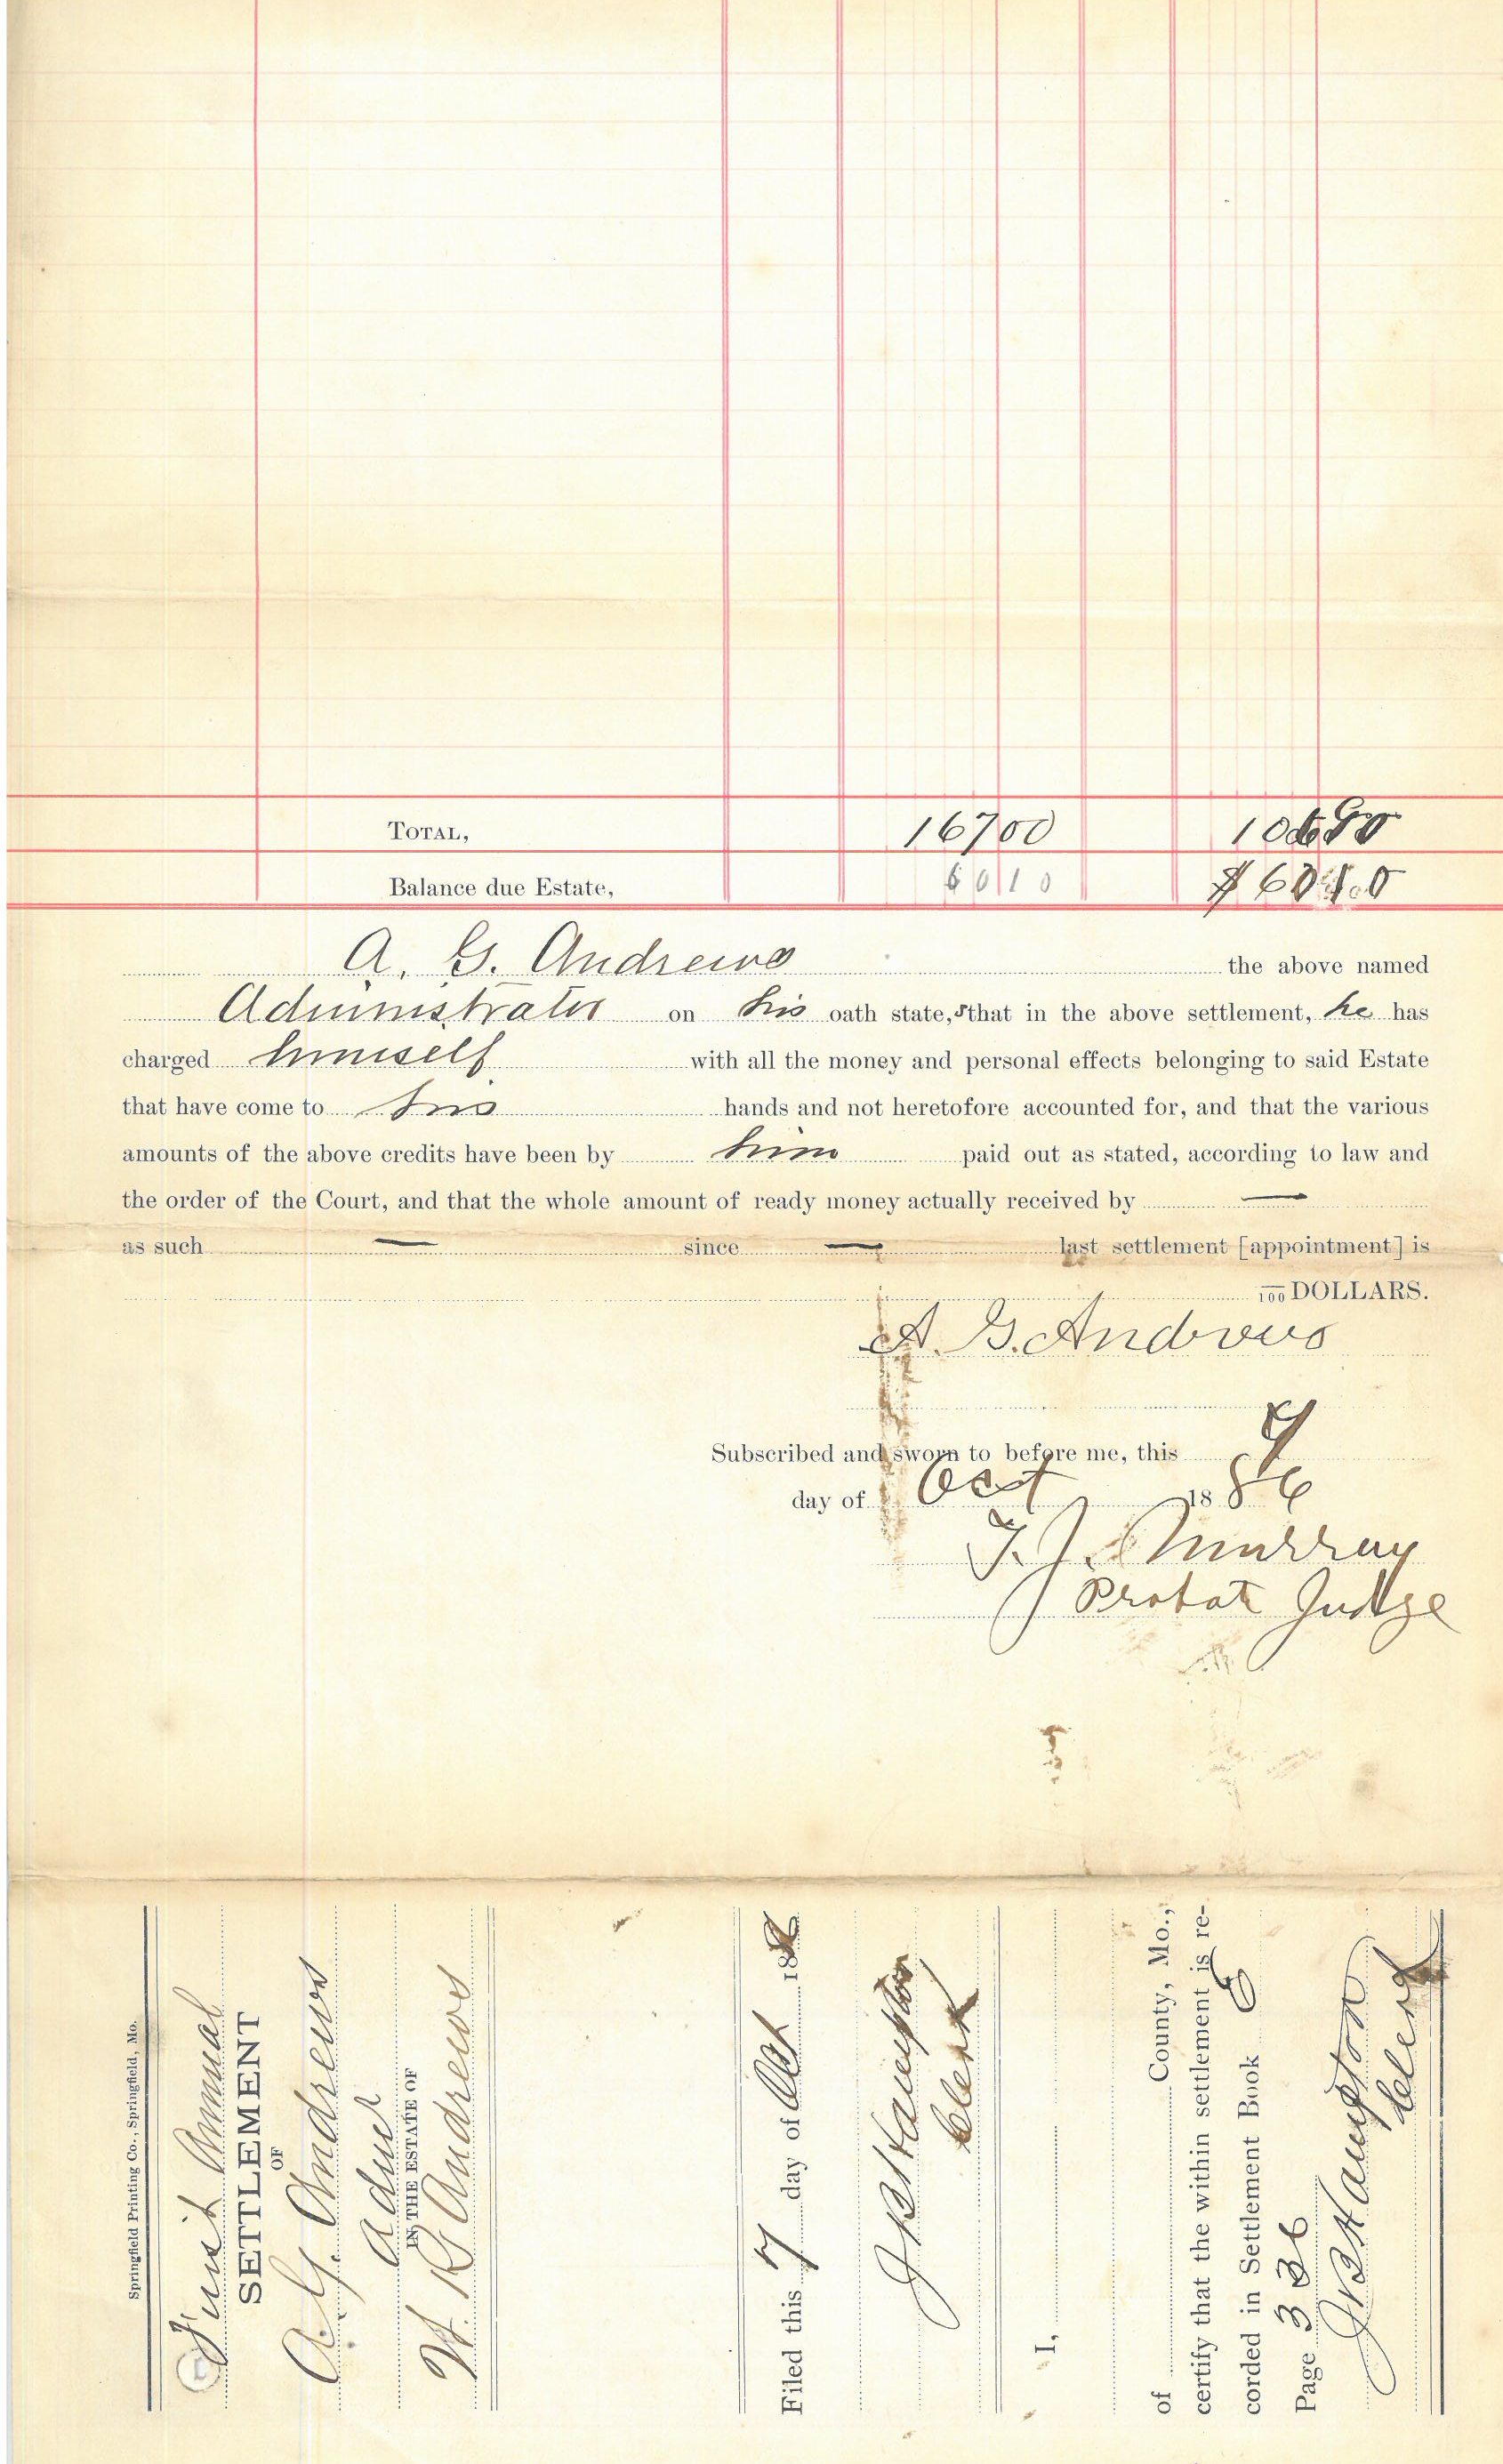 TOTAL, 16700 10690
Balance due Estate, 6010 $ 6010
A. G. Andrews the above named
Administrator on his oath state,s that in the above settlement, he has
charged himself with all the money and personal effects belonging to said Estate
that have come to his hands and not heretofore accounted for, and that the various
amounts of the above credits have been by him paid out as stated, according to law and
the order of the Court, and that the whole amount of ready money actually received by —
as such — since — last settlement [appointment] is
/100 DOLLARS.
A. G. Andrews
Subscribed and sworn to before me, this 7
day of Oct 1886
T. J. Murray
Probate Judge
Springfield Printing Co., Springfield, Mo.
First Annual
SETTLEMENT
OF
A. G. Andrews
Admr
IN THE ESTATE OF
W. R. Andrews
Filed this 7 day of Oct 1886
J B Hampton
Clerk
I,
of County, Mo.,
certify that the within settlement is re-
corded in Settlement Book
Page 336
J B Hampton
Clerk